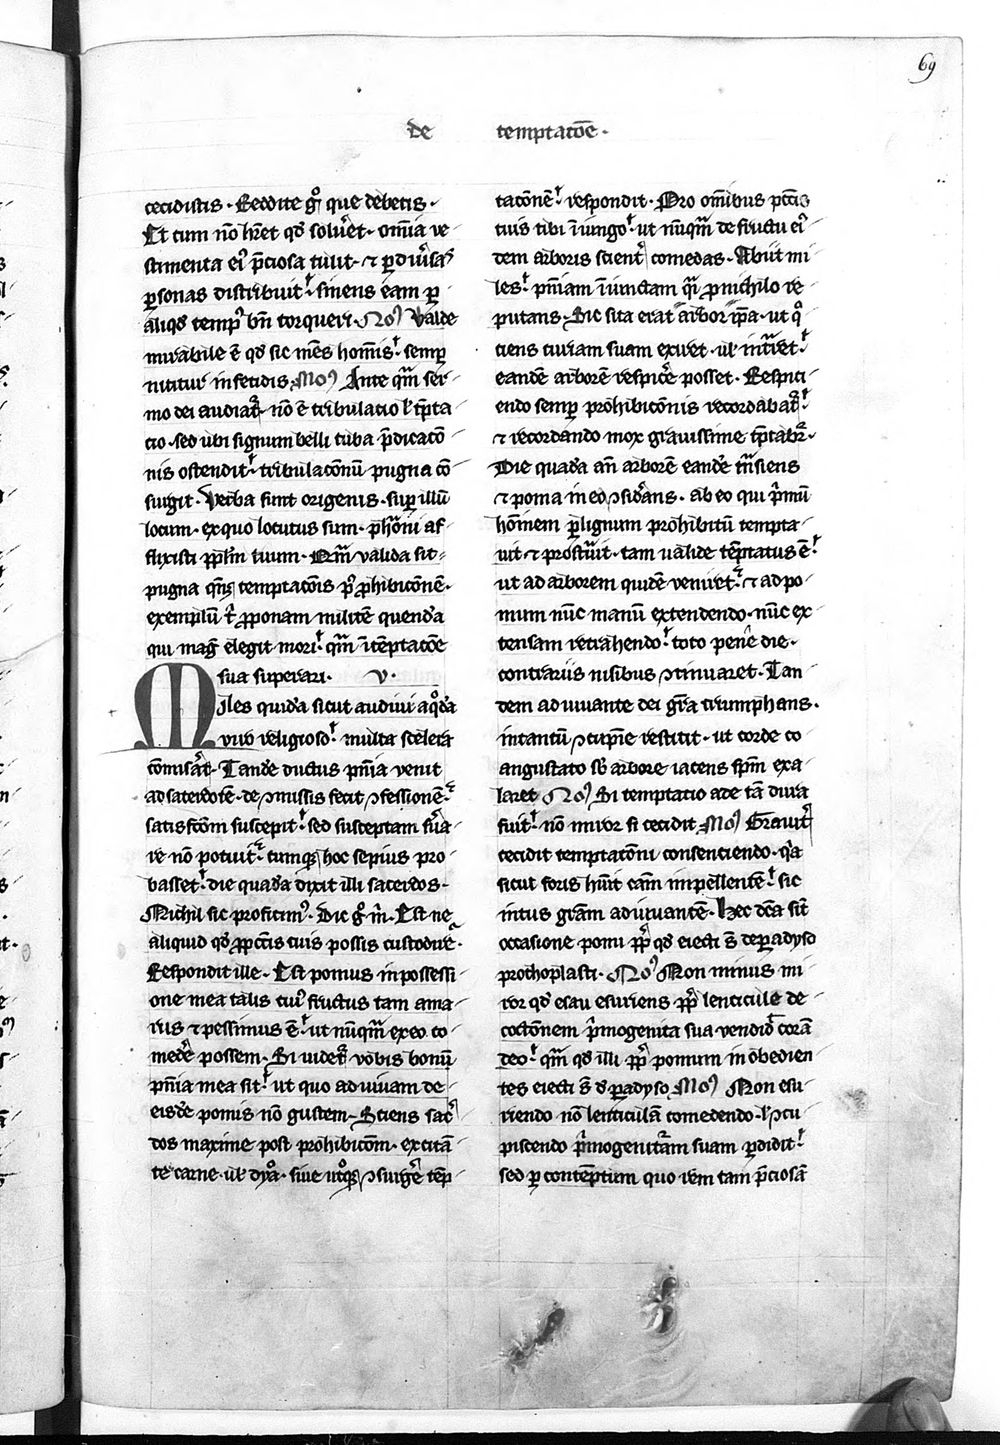 69
de temptatōe.
cecidistis. Reddite gͦ que debetis.
Et cum nō hr̄et qd̓ solu̓et. om̄ia ve
stimenta eiꝰ p̄ciosa tulit. ⁊ ꝑ diu̓sas
ꝑsonas distribuit. sinens eam ꝑ
aliqd̓ tempꝰ bn̄ torqueri. Noꝰ Valde
mirabile ē qd̓ sic mēs homīs. semꝑ
nititur in fetidis. Moꝰ Ante qm̄ ser
mo dei audiat̓. nō ē tribulatio ł tp̄ta
cio. sed ubi signum belli tuba p̄dicatō
nis ostendit. tribulatōnū pugna cō
surgit. Verba sunt origenis. suꝑ illū
locum. ex quo locutus sum. ph̄aōni af
flixisti pp̄l̄m tuum. Qm̄ valida sit
pugna temptatōis pꝰ ꝓhibicōnē.
exemplū t̓ ꝓponam militē quend̓a
qui mag̓ elegit mori. qm̄ ī tēptatōe
sua superari. v.
Miles quid̓a sicut audiui a qͦd̓a
viro religioso. multa scelera
cōmisat̓. Tand̓e ductus pn̄ia venit
ad sacerdotē. de ꝯmissis fecit ꝯfessionē.
satisfcōm suscepit. sed susceptam s̓ua
re nō potuit. cumqꝫ hoc sepius pro
basset. die quad̓a dixit illi sacerdos.
Nichil sic proficimꝰ. Dic gͦ m̓. Est ne
aliquid qd̓ ꝓ pctīs tuis possis custodire.
Respondit ille. Est pomus in possessi
one mea talis cuiꝰ fructus tam ama
rus ⁊ pessimus ē. ut nūqm̄ ex eo co
med̓e possem. Si uidet̓ vobis bonū
pn̄ia mea sit. ut quo ad uiuam de
eisd̓e pomis nō gustem. Sciens sac̓
dos maxime post prohibicōm. excitā
te carne. ul̓ dyaͦ. siue utͦqꝫ ꝯsurg̓e tēp
tacōnē. respondit. Pro om̄ibus pctīs
tuis tibi īiungo. ut nūqm̄ de fructu eiꝰ
dem arboris scient̓ comedas. Abiit mi
les. pn̄iam īiunctam qͣi ꝓ nichilo re
putans. Sic sita erat arbor ip̄a. ut qͦ
ciens curiam suam exiret. ul̓ int̓ret.
eandē arborē respic̓e posset. Respici
endo semꝑ prohibicōnis recordabat̓.
⁊ recordando mox grauissime tp̄tabat̓.
Die quad̓a an̄ arborē eand̓e tn̄siens
⁊ poma in eo ꝯsid̓ans. ab eo qui p̓mū
hōinem ꝑ lignum prohibitū tempta
uit ⁊ prost̓uit. tam ualide tēptatus ē.
ut ad arborem quid̓e veniret. ⁊ ad po
mum nūc manū extendendo. nūc ex
tensam retrahendo. toto pene die.
contrariis nisibus ꝯtinuaret. Tan
dem adiuuante dei gr̄a triumphans.
intantū ꝯcupīe restitit. ut corde co
angustato sb̓ arbore iacens spm̄ exa
laret Noꝰ Si temptatio ade tā dura
fuit. nō miror si cecidit Moꝰ Grauit̓
cecidit temptatōni consentiendo. qͣa
sicut foris h̓uit cām impellentē. sic
intus gram adiuuantē. Hec dc̄a sīt
occasione pomi pp̄ qd̓ eiecti s̄ de ꝑadyso
prothoplasti. Noꝰ Non minus mi
ror qd̓ esau esuriens pp̄ lenticule de
coctōnem p̓mogenita sua vendid̓ corā
deo. qm̄ qd̓ illi pp̄ pomum inobedien
tes eiecti s̄ d̓ ꝑadyso Moꝰ Non esu
riendo nō lenticulā comedendo. ł ꝯcu
piscendo p̓mogenitam suam ꝑdidit.
sed ꝑ contēptum quo rem tam p̄ciosā